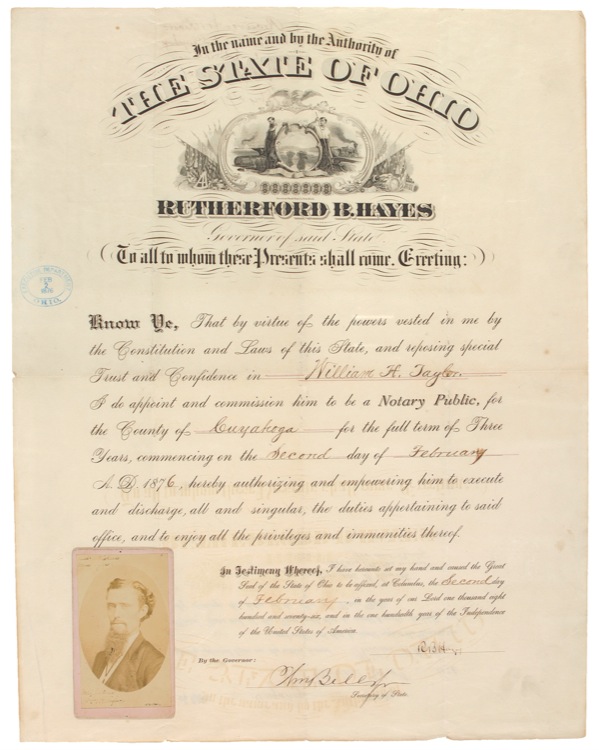 In the name and by the Authority of
THE STATE OF OHIO
RUTHERFORD B. HAYES
Governor of said State
(To all to whom these Presents shall come. Greeting:)
OHIO
Know Ye, That by virtue of the powers vested in me by
the Constitution and Laws of this State, and reposing special
Trust and Confidence in William H. Taylor
I do appoint and commission him to be a Notary Public, for
the County of Cuyahoga for the full term of Three
Years, commencing on the Second day of February
A. D. 1876, hereby authorizing and empowering him to execute
and discharge, all and singular, the duties appertaining to said
office, and to enjoy all the privileges and immunities thereof.
In Testimony Whereof, I have hereunto set my hand and caused the Great
Seal of the State of Ohio to be affixed, at Columbus, the Second day
of February, in the year of our Lord one thousand eight
hundred and seventy-six, and in the one hundredth year of the Independence
of the United States of America.
By the Governor:
Secretary of State.